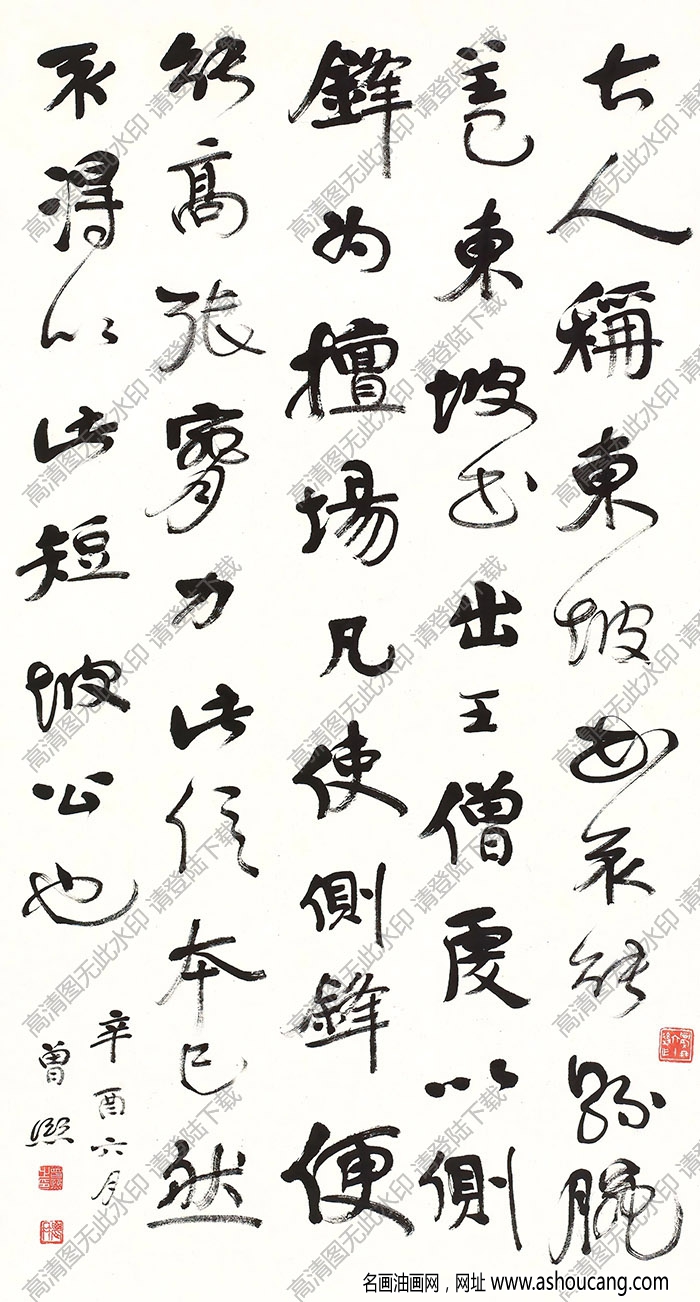 古人稱東坡書不能懸腕
蓋東坡書出王僧虔以側
鋒為擅場凡使側鋒便
能高張膂力此信本已然
不得以此短坡公也
辛酉六月
曾熙
高清图无此水印 请登陆下载
名画油画网，网址 www.ashoucang.com